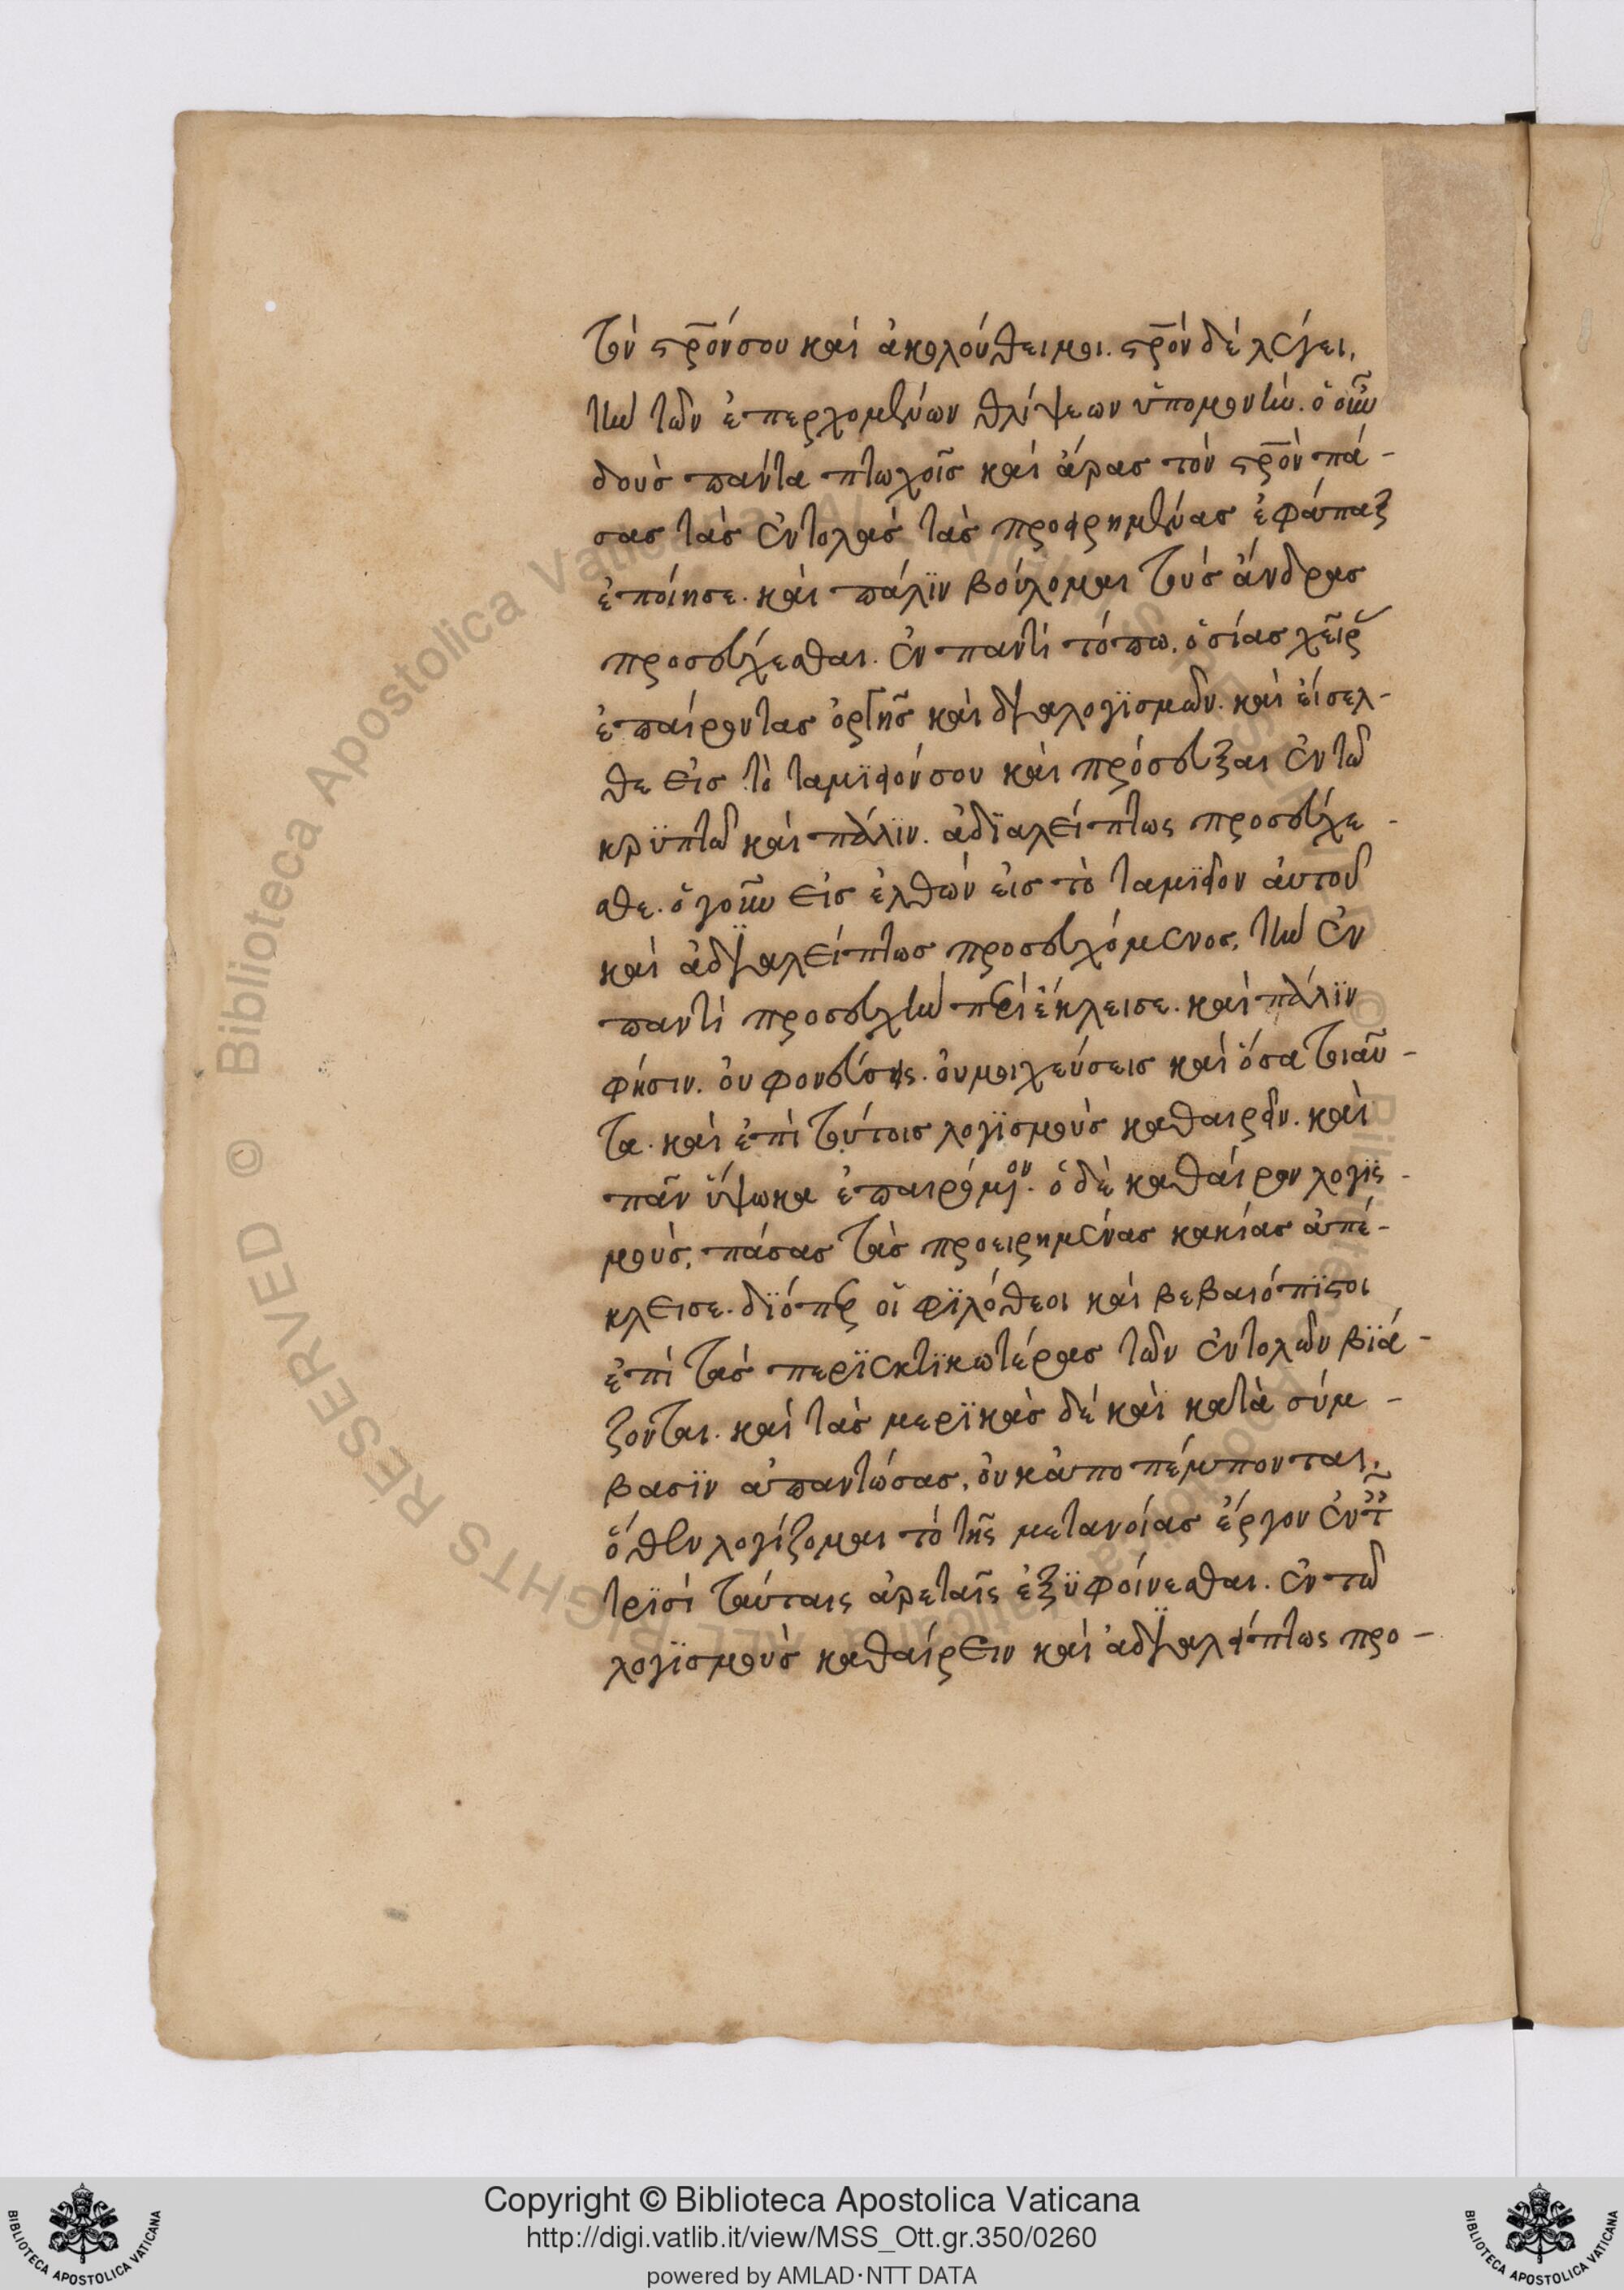 τὸν στρόν σου καὶ ἀκολούθει μοι. στρόν δὲ λέγει,
τὴν τῶν ἐπερχομένων θλίψεων ὑπομονήν. ὁ οὖν
δοὺς πάντα πτωχοῖς καὶ ἄρας τὸν στρὸν πά-
σας τὰς ἐντολὰς τὰς προειρημένας ἐφάπαξ
ἐποίησε. καὶ πάλϊν βούλομαι τοὺς ἄνδρας
προσεύχεσθαι. ἐν παντὶ τόπω. ὁσίας χεῖρ
ἐπαίροντας ὀργῆς καὶ διαλογϊσμῶν. καὶ εἴσελ-
θε εἰς τὸ ταμϊεῖόν σου καὶ πρόσευξαι ἐν τῶ
κρϋπτῶ καὶ πάλϊν. ἀδϊαλείπτως προσεύχε-
σθε. ὁ γοῦν εἰσελθὼν εἰς τὸ ταμϊεῖον αὐτοῦ
καὶ ἀδϊαλείπτως προσευχόμενος, τὴν ἐν
παντὶ προσευχὴν περιέκλεισε. καὶ πάλϊν
φησιν. οὐ φονεύσης. οὐ μοιχεύσεις καὶ ὅσα τοιαῦ-
τα. καὶ ἐπὶ τούτοις λογϊσμοὺς καθαιρεῖν. καὶ
πᾶν ὕψωμα ἐπαιρόμενον. ὁ δὲ καθαίρων λογϊσ-
μοὺς, πάσας τὰς προειρημένας κακίας ἀπέ-
κλεισε. δϊόπερ οἱ φϊλόθεοι καὶ βεβαιόπϊστοι
ἐπὶ τὰς περϊεκτϊκωτέρας τῶν ἐντολῶν βϊά-
ζονται. καὶ τὰς μερϊκὰς δὲ καὶ κατὰ σύμ-
βασϊν ἀπαντώσας, οὐκ ἀποπέμπονται.
ὅθεν λογίζομαι τὸ τῆς μετανοίας ἔργον ἐν τ
τρϊσὶ ταύταις ἀρεταῖς ἐξϋφαίνεσθαι. ἐν τῶ
λογϊσμοὺς καθαίρειν καὶ ἀδϊαλείπτως προ-
Copyright © Biblioteca Apostolica Vaticana
http://digi.vatlib.it/view/MSS_Ott.gr.350/0260
powered by AMLAD·NTT DATA